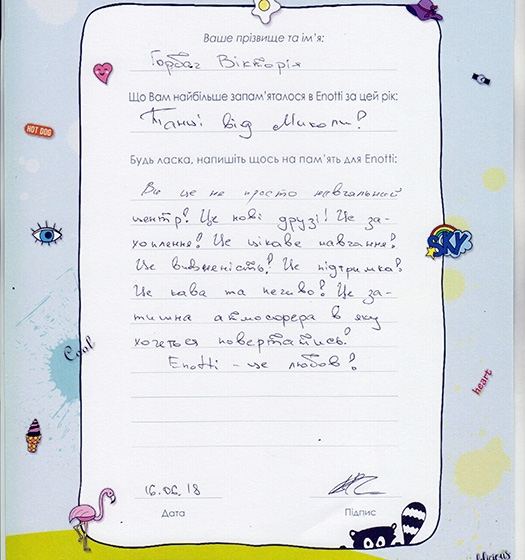 Ваше прізвище та ім'я:
Горбач Вікторія
Що Вам найбільше запам'яталося в Enotti за цей рік:
Танці від Миколи!
Будь ласка, напишіть щось на пам'ять для Enotti:
Ви це не просто навчальний
центр! Це нові друзі! Це за-
хоплення! Це цікаве навчання!
Це впевненість! Це підтримка!
Це кава та печиво! Це за-
тишна атмосфера в яку
хочеться повертатись!
Enotti - це любов!
16.06.18
Дата
Підпис
HOT DOG
SKY
Cool
heart